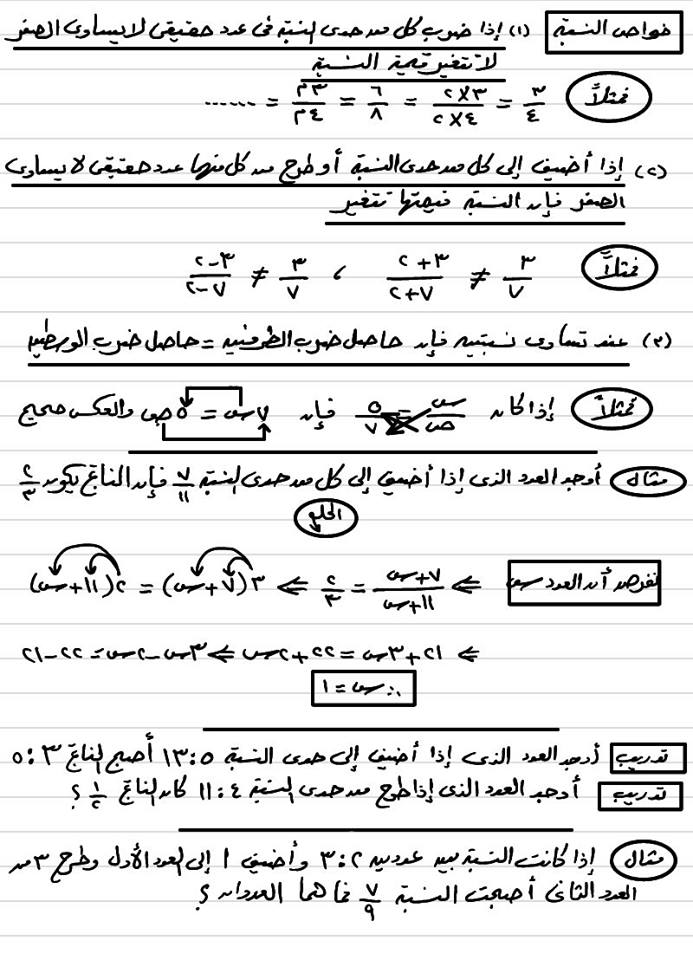 خواص النسبة (١) إذا ضرب كل من حدى النسبة فى عدد حقيقى لا يساوى الصفر
لا تتغير قيمة النسبة
فمثلاً ٣/٤ = ٣×٢/٤×٢ = ٦/٨ = ٣م/٤م = ......
(٢) إذا أضيف إلى كل من حدى النسبة أو طرح من كل منها عدد حقيقى لا يساوى
الصفر فإن النسبة قيمتها تتغير
فمثلاً ٣/٧ ≠ ٣+٢/٧+٢ ، ٣/٧ ≠ ٣-٢/٧-٢
(٣) عند تساوى نسبتين فإن حاصل ضرب الطرفين = حاصل ضرب الوسطين
فمثلاً إذا كان س/ص = ٥/٧ فإن ٧س = ٥ص والعكس صحيح
مثال أوجد العدد الذى إذا أضيف إلى كل من حدى النسبة ٧/١١ فإن الناتج يكون ٢/٣
الحل
نفرض أن العدد س ⇐ ٧+س/١١+س = ٢/٣ ⇐ ٣(٧+س) = ٢(١١+س)
⇐ ٢١+٣س = ٢٢+٢س ⇐ ٣س-٢س = ٢٢-٢١
∴ س = ١
تدريب أوجد العدد الذى إذا أضيف إلى حدى النسبة ٥:١٣ أصبح الناتج ٣:٥
تدريب أوجد العدد الذى إذا طرح من حدى النسبة ٤:١١ كان الناتج ١/٢ ؟
مثال إذا كانت النسبة بين عددين ٢:٣ وأضيف ١ إلى العدد الأول وطرح ٣ من
العدد الثانى أصبحت النسبة ٧/٩ فما هما العددان ؟